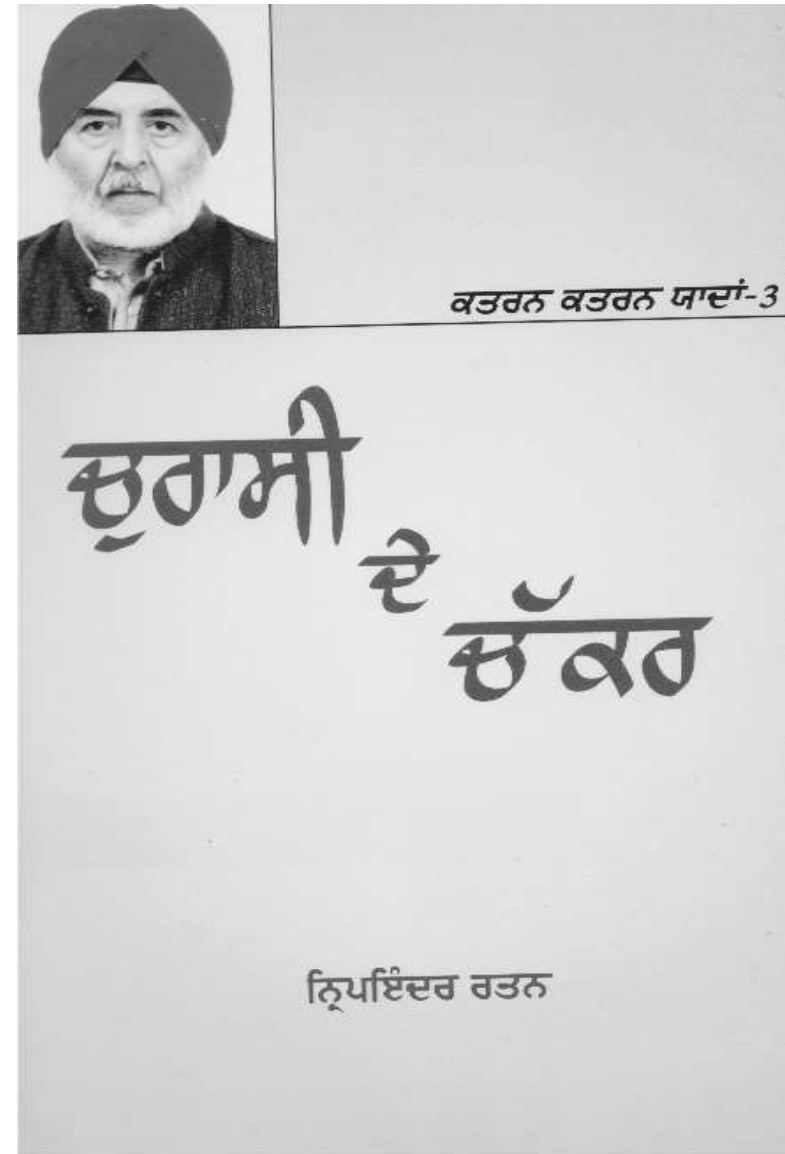 ਕਤਰਨ ਕਤਰਨ ਯਾਦਾਂ-3
ਚੁਰਾਸੀ
ਦੇ
ਚੱਕਰ
ਨ੍ਰਿਪਇੰਦਰ ਰਤਨ